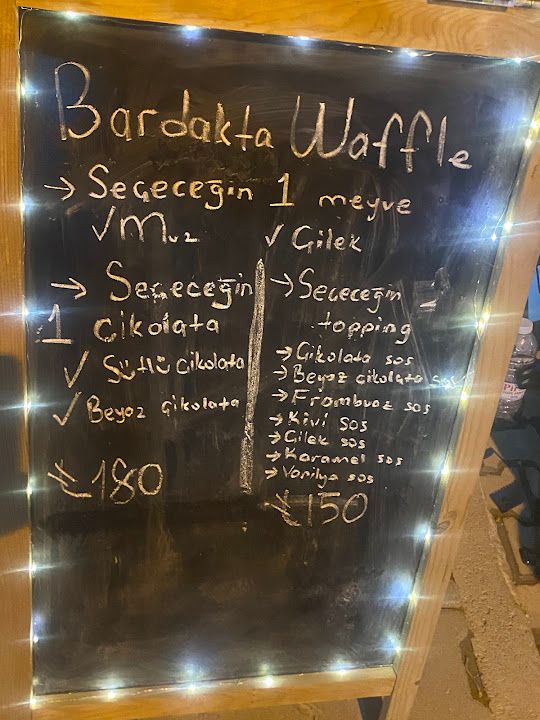 Bardakta Waffle
→ Seçeceğin 1 meyve
✓ Muz ✓ Çilek
→ Seçeceğin
1 çikolata
✓ Sütlü çikolata
✓ Beyaz çikolata
₺180
→ Seçeceğin 2
topping
→ Çikolata sos
→ Beyaz çikolata sos
→ Frambuaz sos
→ Kivi sos
→ Çilek sos
→ Karamel sos
→ Vanilya sos
₺150